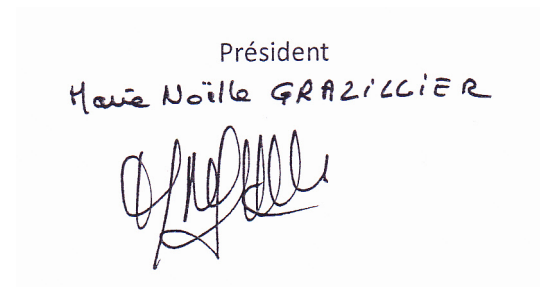 Président
Marie Noëlle GRAZILLIER